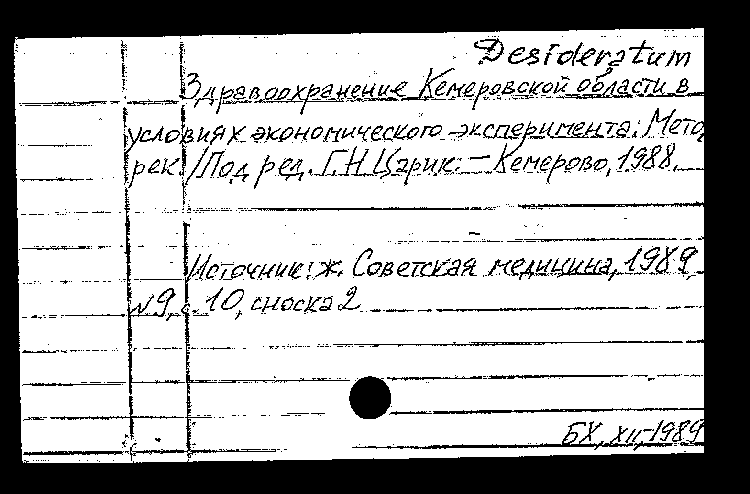 Desideratum
Здравоохранение Кемеровской области в
условиях экономического эксперимента: Мето
рек. /Под ред. Г.Н Царик. – Кемерово, 1988.
Источник: ж. Советская медицина, 1989,
№9, с. 10, сноска 2
БХ, XII, 1989